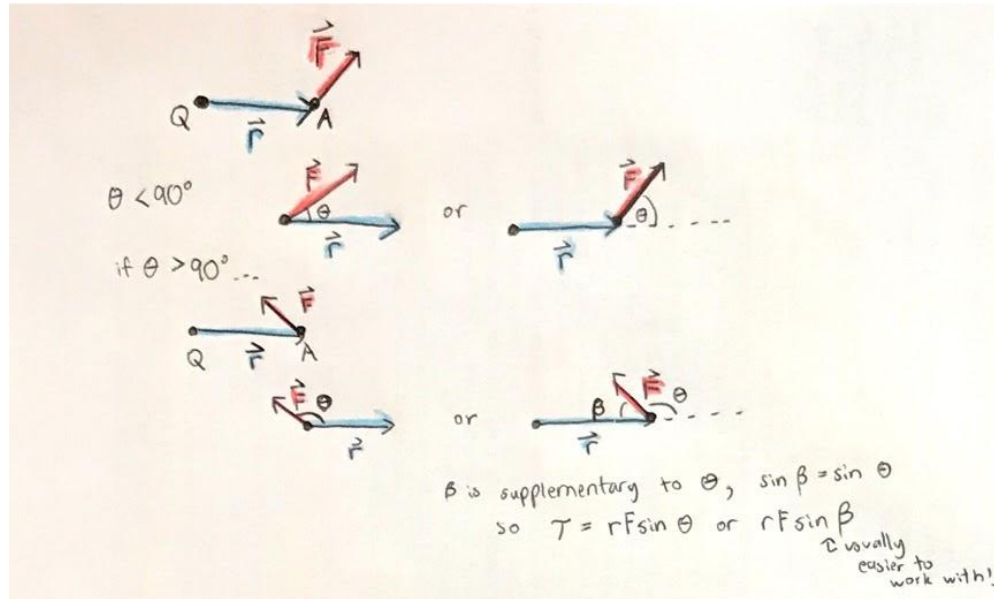 F⃗
Q r⃗ A
θ < 90° F⃗ θ r⃗ or F⃗ θ r⃗
if θ > 90°...
F⃗
Q r⃗ A
F⃗ θ r⃗ or β F⃗ θ r⃗
β is supplementary to θ, sin β = sin θ
so τ = rF sin θ or rF sin β
usually
easier to
work with!